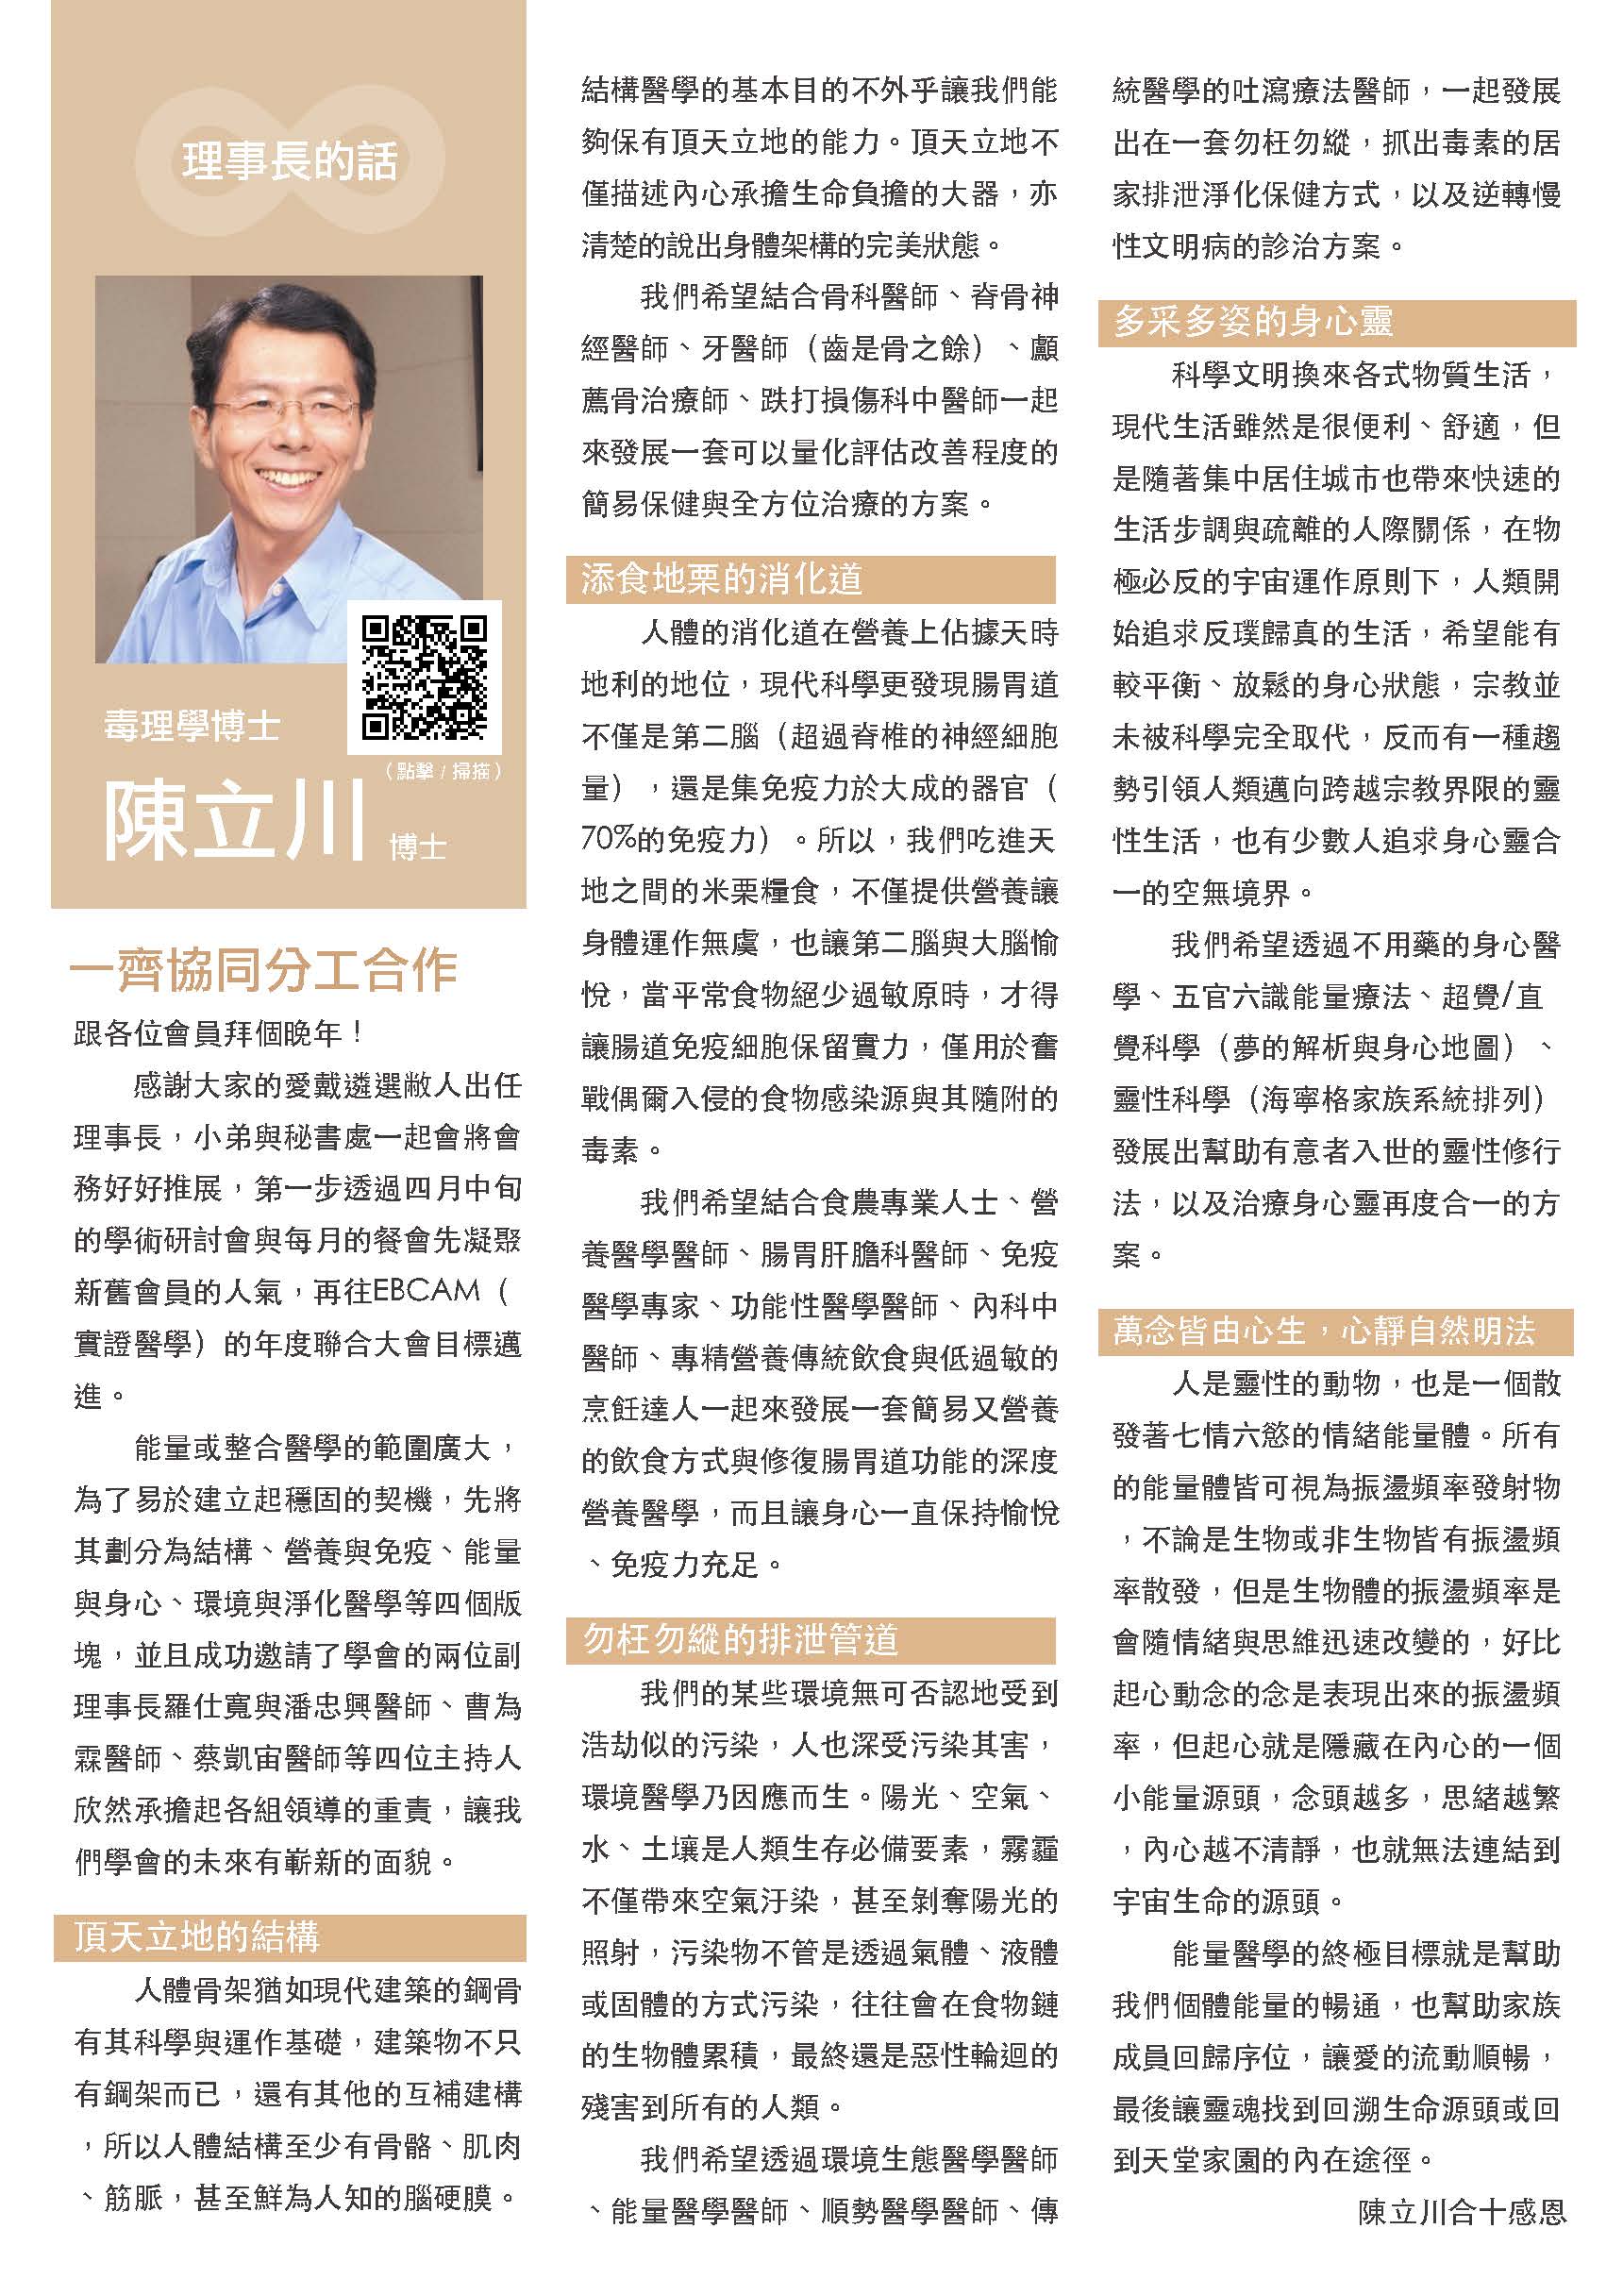 理事長的話
毒理學博士
（點擊 / 掃描）
陳立川 博士
一齊協同分工合作
跟各位會員拜個晚年！
感謝大家的愛戴遴選敝人出任
理事長，小弟與秘書處一起會將會
務好好推展，第一步透過四月中旬
的學術研討會與每月的餐會先凝聚
新舊會員的人氣，再往EBCAM（
實證醫學）的年度聯合大會目標邁
進。
能量或整合醫學的範圍廣大，
為了易於建立起穩固的契機，先將
其劃分為結構、營養與免疫、能量
與身心、環境與淨化醫學等四個版
塊，並且成功邀請了學會的兩位副
理事長羅仕寬與潘忠興醫師、曹為
霖醫師、蔡凱宙醫師等四位主持人
欣然承擔起各組領導的重責，讓我
們學會的未來有嶄新的面貌。
頂天立地的結構
人體骨架猶如現代建築的鋼骨
有其科學與運作基礎，建築物不只
有鋼架而已，還有其他的互補建構
，所以人體結構至少有骨骼、肌肉
、筋脈，甚至鮮為人知的腦硬膜。
結構醫學的基本目的不外乎讓我們能
夠保有頂天立地的能力。頂天立地不
僅描述內心承擔生命負擔的大器，亦
清楚的說出身體架構的完美狀態。
我們希望結合骨科醫師、脊骨神
經醫師、牙醫師（齒是骨之餘）、顱
薦骨治療師、跌打損傷科中醫師一起
來發展一套可以量化評估改善程度的
簡易保健與全方位治療的方案。
添食地栗的消化道
人體的消化道在營養上佔據天時
地利的地位，現代科學更發現腸胃道
不僅是第二腦（超過脊椎的神經細胞
量），還是集免疫力於大成的器官（
70%的免疫力）。所以，我們吃進天
地之間的米栗糧食，不僅提供營養讓
身體運作無虞，也讓第二腦與大腦愉
悅，當平常食物絕少過敏原時，才得
讓腸道免疫細胞保留實力，僅用於奮
戰偶爾入侵的食物感染源與其隨附的
毒素。
我們希望結合食農專業人士、營
養醫學醫師、腸胃肝膽科醫師、免疫
醫學專家、功能性醫學醫師、內科中
醫師、專精營養傳統飲食與低過敏的
烹飪達人一起來發展一套簡易又營養
的飲食方式與修復腸胃道功能的深度
營養醫學，而且讓身心一直保持愉悅
、免疫力充足。
勿枉勿縱的排泄管道
我們的某些環境無可否認地受到
浩劫似的污染，人也深受污染其害，
環境醫學乃因應而生。陽光、空氣、
水、土壤是人類生存必備要素，霧霾
不僅帶來空氣汙染，甚至剝奪陽光的
照射，污染物不管是透過氣體、液體
或固體的方式污染，往往會在食物鏈
的生物體累積，最終還是惡性輪迴的
殘害到所有的人類。
我們希望透過環境生態醫學醫師
、能量醫學醫師、順勢醫學醫師、傳
統醫學的吐瀉療法醫師，一起發展
出在一套勿枉勿縱，抓出毒素的居
家排泄淨化保健方式，以及逆轉慢
性文明病的診治方案。
多采多姿的身心靈
科學文明換來各式物質生活，
現代生活雖然是很便利、舒適，但
是隨著集中居住城市也帶來快速的
生活步調與疏離的人際關係，在物
極必反的宇宙運作原則下，人類開
始追求反璞歸真的生活，希望能有
較平衡、放鬆的身心狀態，宗教並
未被科學完全取代，反而有一種趨
勢引領人類邁向跨越宗教界限的靈
性生活，也有少數人追求身心靈合
一的空無境界。
我們希望透過不用藥的身心醫
學、五官六識能量療法、超覺/直
覺科學（夢的解析與身心地圖）、
靈性科學（海寧格家族系統排列）
發展出幫助有意者入世的靈性修行
法，以及治療身心靈再度合一的方
案。
萬念皆由心生，心靜自然明法
人是靈性的動物，也是一個散
發著七情六慾的情緒能量體。所有
的能量體皆可視為振盪頻率發射物
，不論是生物或非生物皆有振盪頻
率散發，但是生物體的振盪頻率是
會隨情緒與思維迅速改變的，好比
起心動念的念是表現出來的振盪頻
率，但起心就是隱藏在內心的一個
小能量源頭，念頭越多，思緒越繁
，內心越不清靜，也就無法連結到
宇宙生命的源頭。
能量醫學的終極目標就是幫助
我們個體能量的暢通，也幫助家族
成員回歸序位，讓愛的流動順暢，
最後讓靈魂找到回溯生命源頭或回
到天堂家園的內在途徑。
陳立川合十感恩